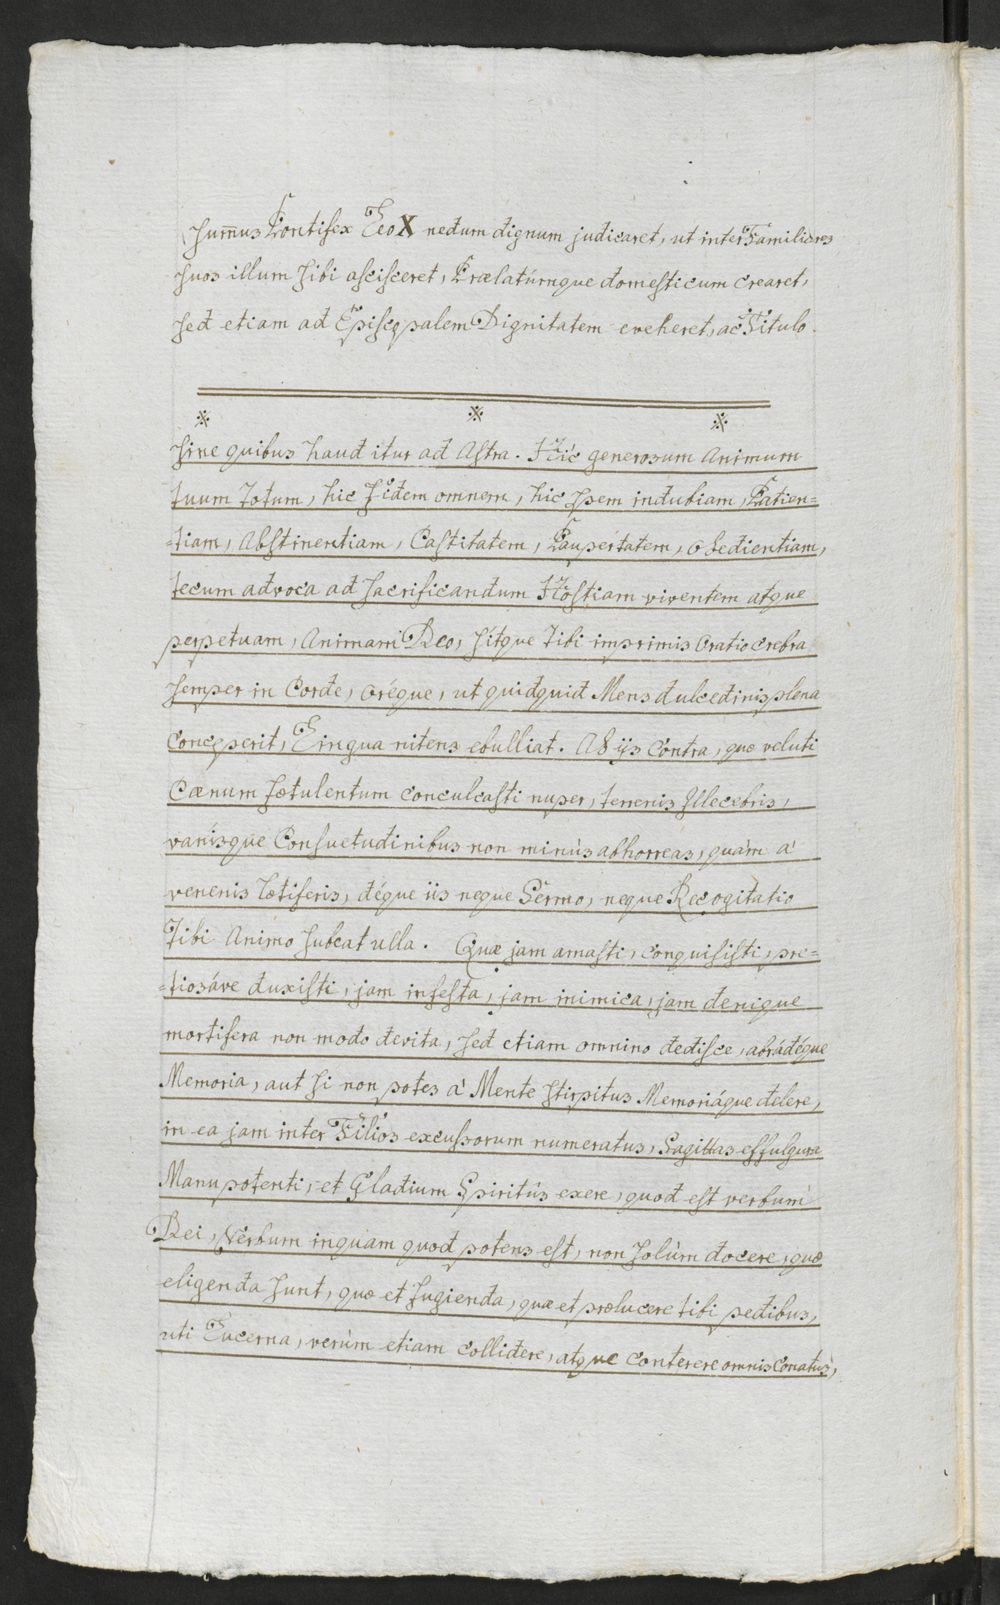 Sum̄us Pontifex Leo X nedum dignum judicaret, ut inter Familiares
suos illum sibi ascisceret, Prælatúmque domesticum crearet,
sed etiam ad Episcopalem Dignitatem eveheret, ac Titulo.
※ ※ ※
sine quibus haud itur ad Astra. Hic generosum Animum
tuum totum, hic fidem omnem, hic spem indubiam, Patien=
=tiam, Abstinentiam, Castitatem, Paupertatem, obedientiam,
tecum advoca ad sacrificandum Hostiam viventem atque
perpetuam, Animam Deo, sitque tibi imprimis Oratio crebra
semper in Corde, oréque, ut quidquid Mens dulcedinis plena
conceperit, Lingua nitens ebulliat. Ab ijs contra, quæ veluti
Cænum fætulentum conculcasti nuper, terrenis Illecebris,
variisque Consuetudinibus non minùs abhorreas, quàm à
venenis lætiferis, déque iis neque Sermo, neque Recogitatio
Tibi Animo subeat ulla. Quæ jam amasti, conquisisti, pre=
=tiosáve duxisti, jam infesta, jam inimica, jam denique
mortifera non modo devita, sed etiam omnino dedisce, abrádéque
Memoria, aut si non potes à Mente stirpitus Memoriáque delere,
in ea jam inter Filios excussorum numeratus, Sagittas effulgura
Manu potenti, et Gladium Spiritûs exere, quod est verbum
Dei, Verbum inquam quod potens est, non solùm docere, quæ
eligenda sunt, quæ et fugienda, quæ et prælucere tibi pedibus,
uti Lucerna, verùm etiam collidere, atque conterere omnis Conatus,